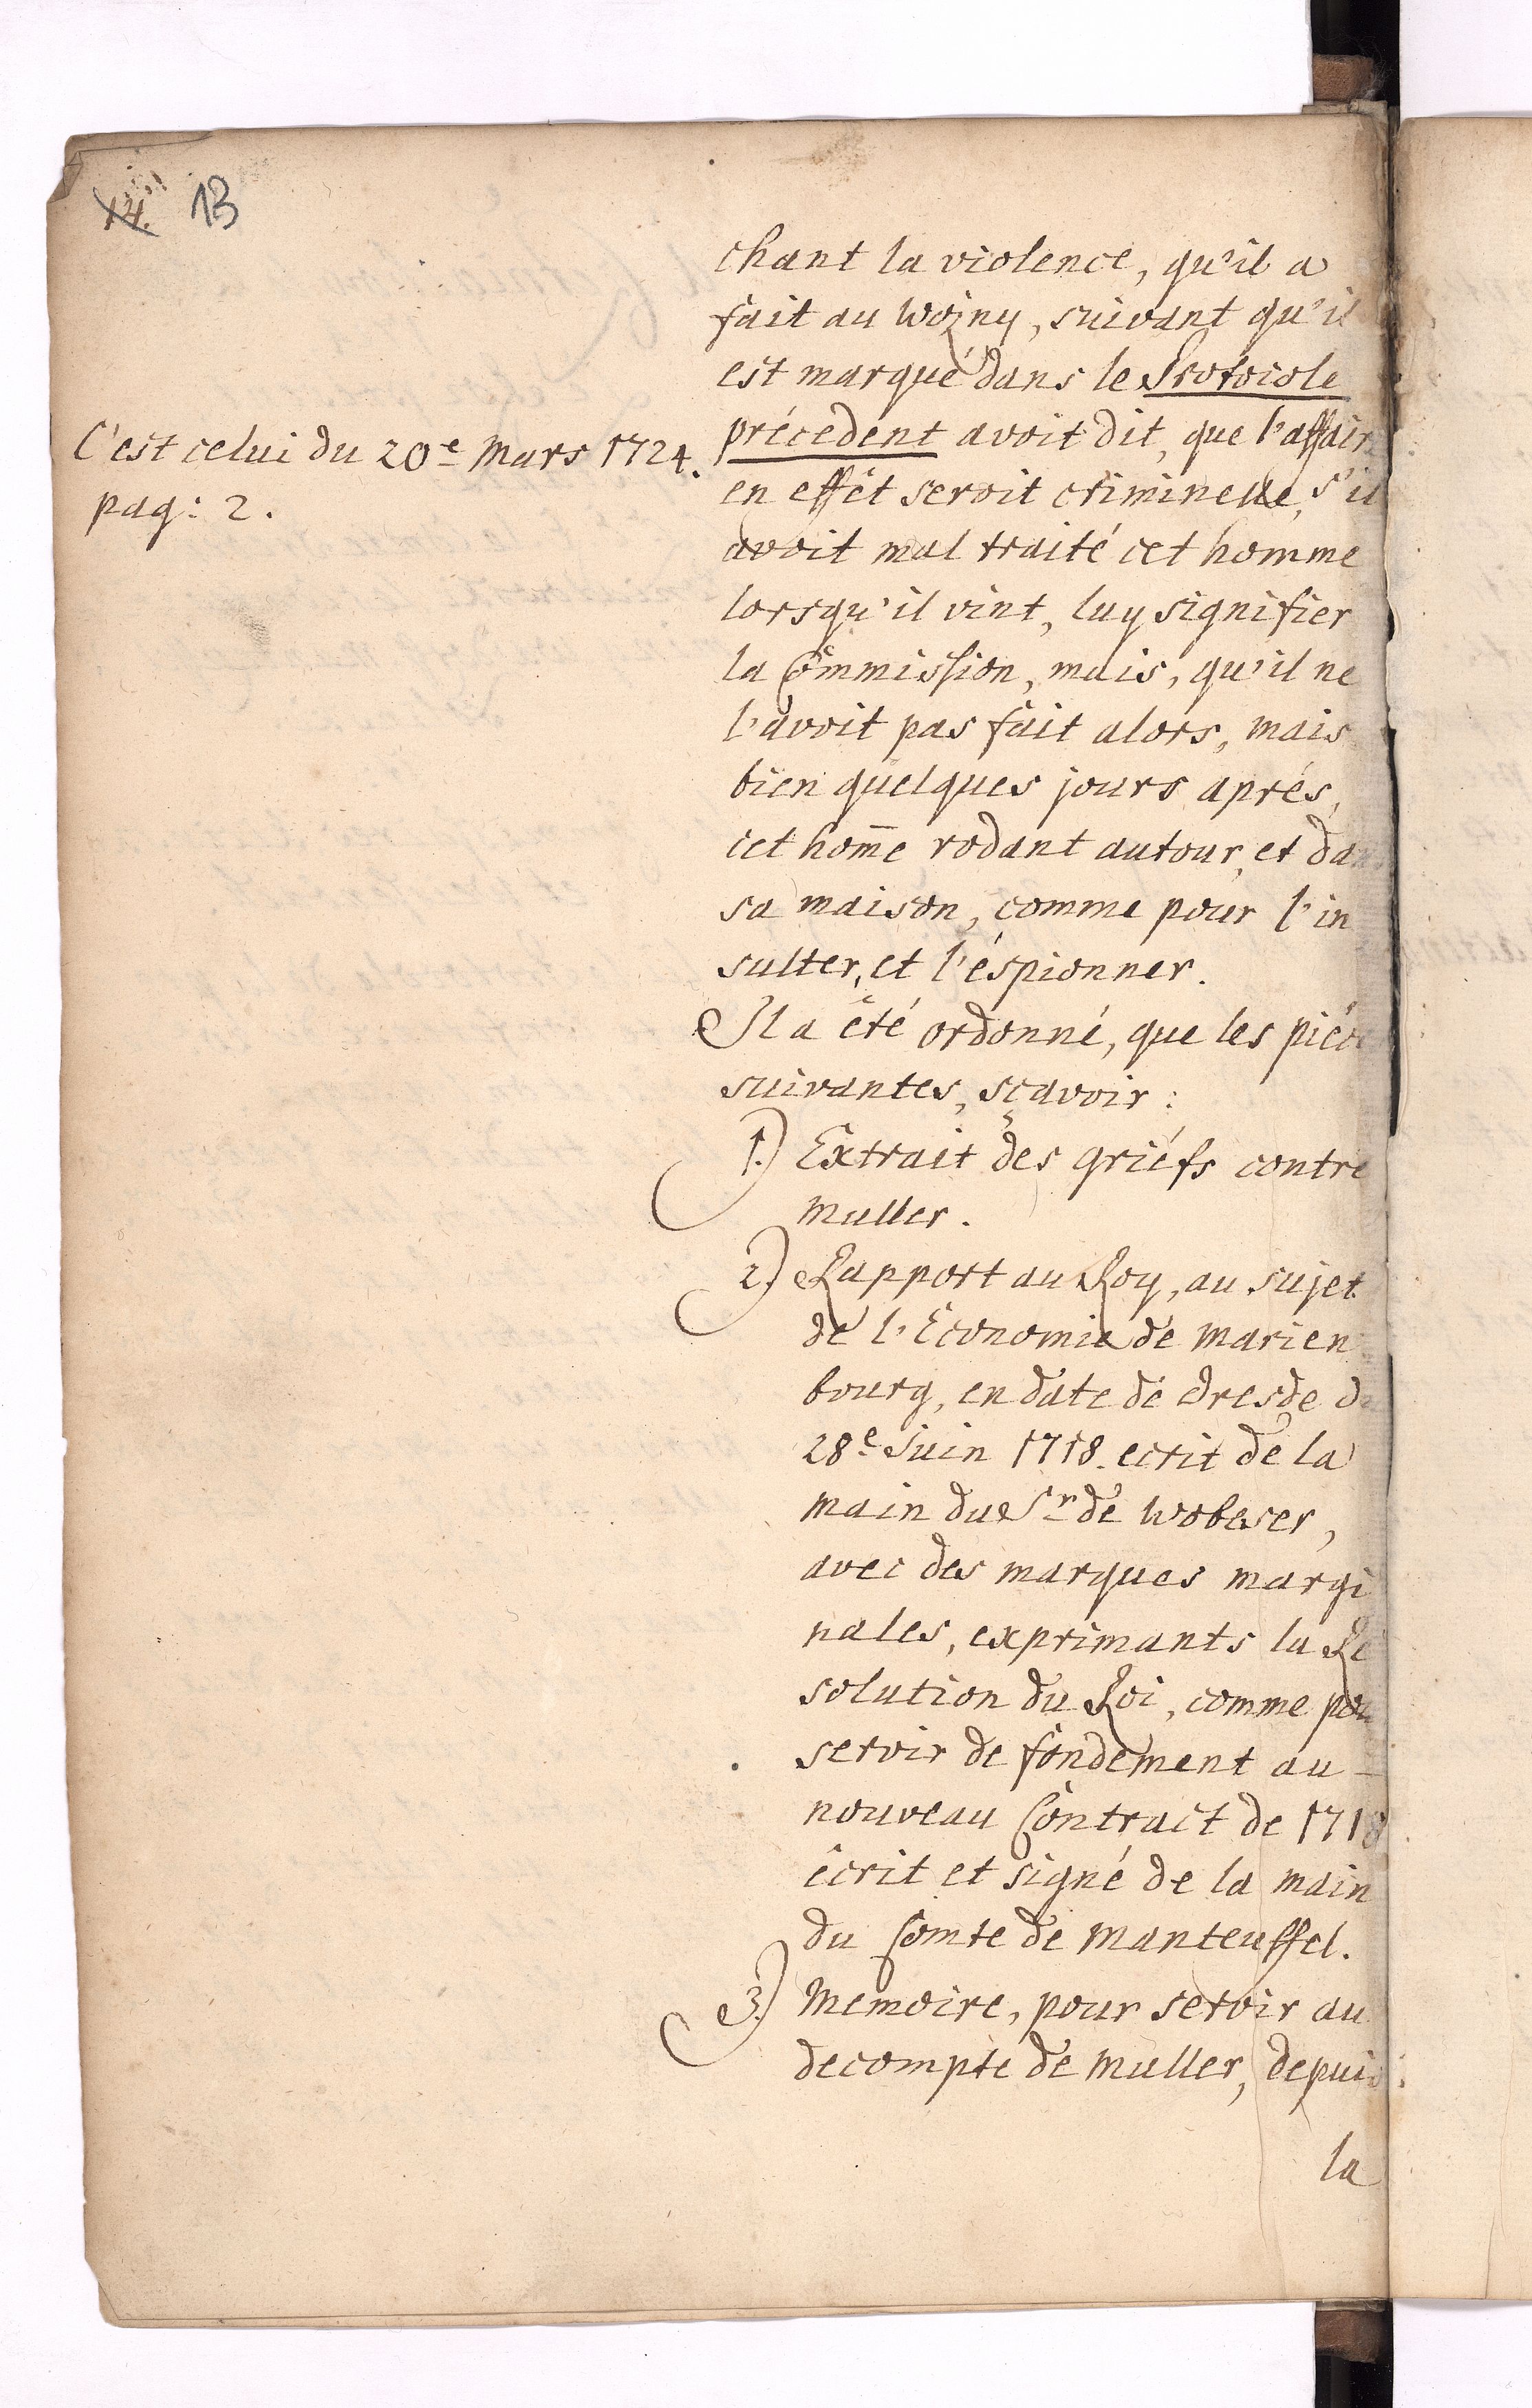 14. 13
chant la violence, qu'il a
fait au Wożny, suivant qu'il
est marqué dans le Protocole
C'est celui du 20e Mars 1724.
pag: 2.
précedent avoit dit, que l'affaire
en effêt seroit criminelle, s'il
avoit mal traité cet homme
lorsqu'il vint, luy signifier
la Commission, mais, qu'il ne
l'avoit pas fait alors, mais
bien quelques jours aprés,
cet hom̄e rodant autour, et dans
sa maison, comme pour l'in
sulter, et l'éspionner.
Il a été ordonné, que les piéces
suivantes, sçavoir:
1.) Extrait des griéfs contre
Muller.
2.) Rapport au Roy, au sujet
de l'Economie de Marien
bourg, en date de Dresde du
28e Juin 1718. ecrit de la
main du Sr de Wobeser,
avec des marques margi
nales, exprimants la Ré
solution du Roi, comme pour
servir de fondement au
nouveau Contract de 1718
écrit et signé de la main
du Comte de Manteuffel.
3.) Memoire, pour servir au
decompte de Muller, depuis
la